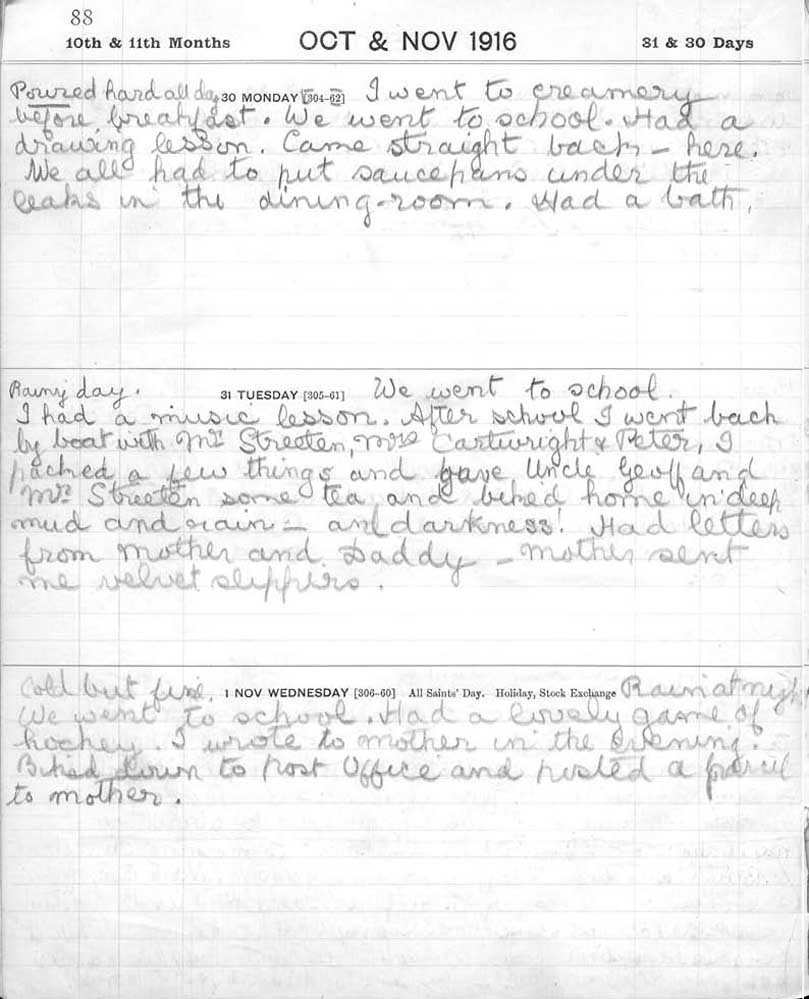 88
10th & 11th Months OCT & NOV 1916 31 & 30 Days
Poured hard all day 30 MONDAY [304-62] I went to creamery
before breakfast. We went to school. Had a
drawing lesson. Came straight back – here.
We all had to put saucepans under the
leaks in the dining-room. Had a bath.
Rainy day. 31 TUESDAY [305-61] We went to school.
I had a music lesson. After school I went back
by boat with Mrs Streeten, Mrs Cartwright & Peter, I
packed a few things and gave Uncle Geoff and
Mrs Streeten some tea and biked home in deep
mud and rain – and darkness! Had letters
from mother and Daddy – mother sent
me velvet slippers.
Cold but fine. 1 NOV WEDNESDAY [306-60] All Saints' Day. Holiday, Stock Exchange Rain at night
We went to school. Had a lovely game of
hockey. I wrote to mother in the evening.
Biked down to post Office and posted a parcel
to mother.